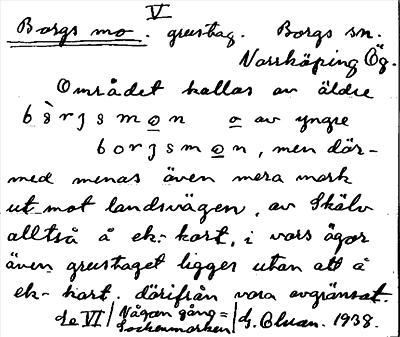 V
Borgs mo. grustag. Borgs sn.
Norrköping Ög.
Området kallas av äldre
b ò r j s m o n o av yngre
b o r j s m o n, men där-
med menas även mera mark
ut mot landsvägen, av Skälv
alltså å ek.-kort, i vars ägor
även grustaget ligger utan att å
ek-kart. därifrån vara avgränsat.
se VI / Någon gång =
Sockenmarken / G. Clvan. 1938.